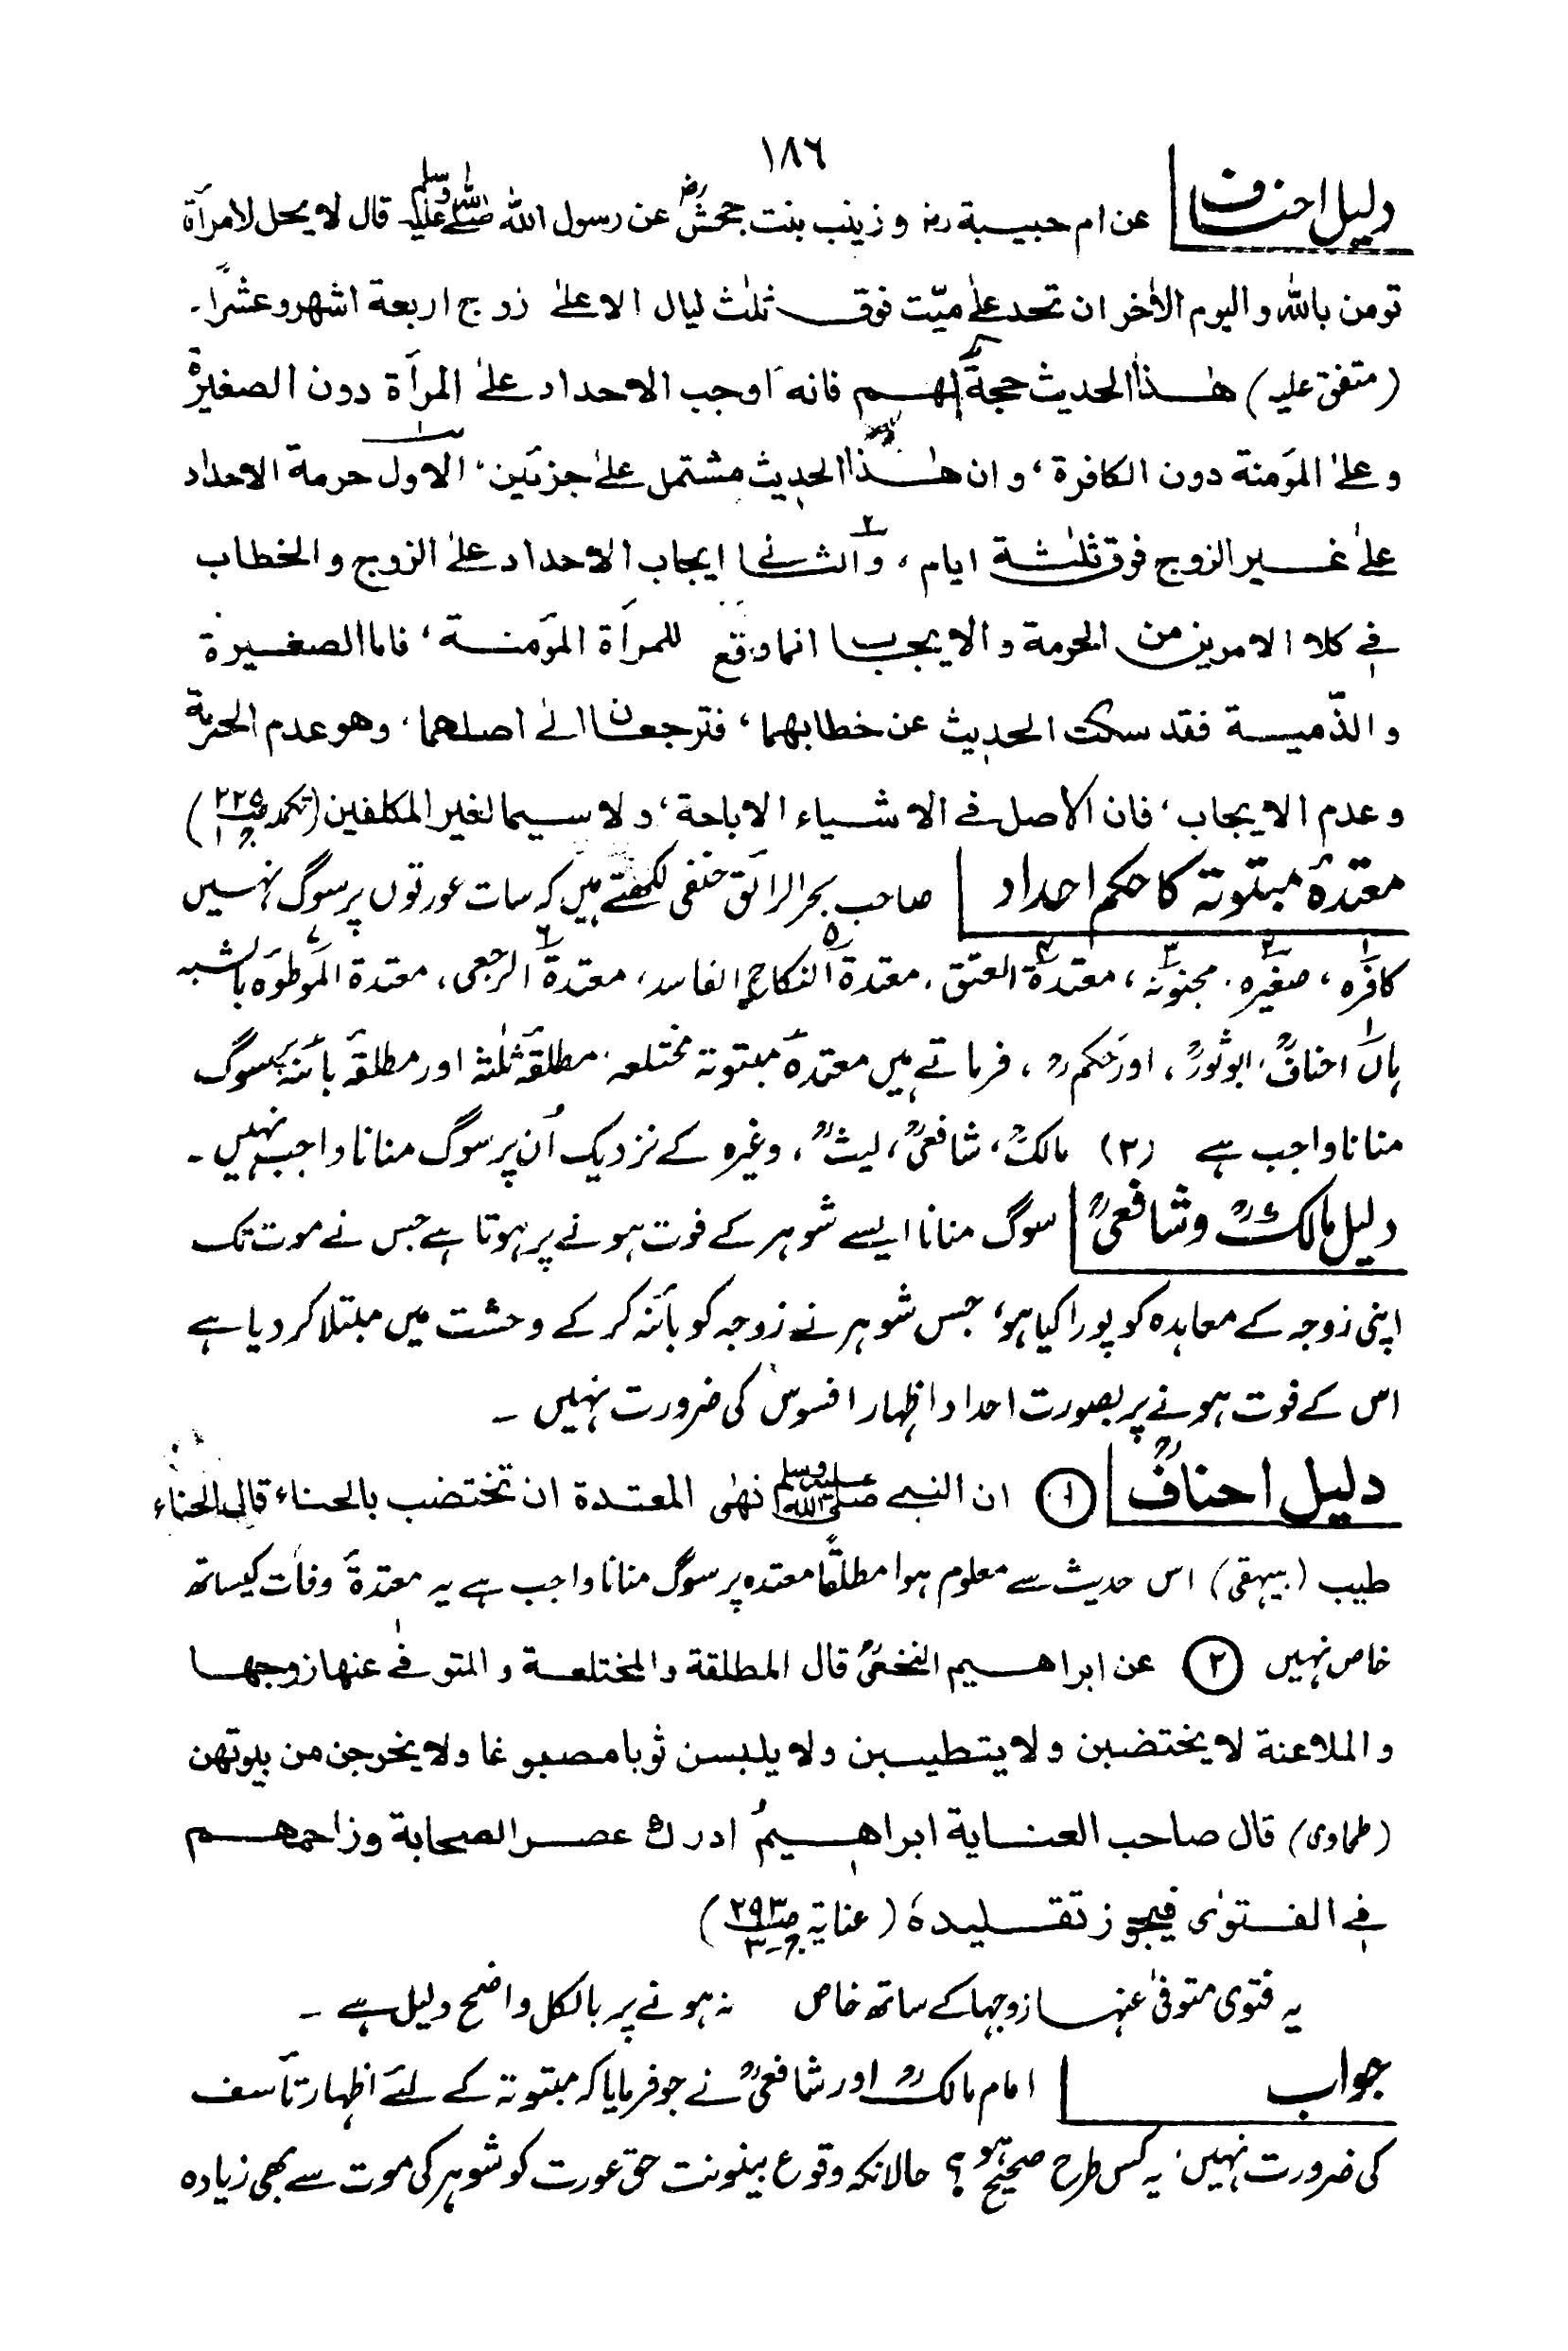 ١٨٦
دلیل احناف عن ام حبیبة رض و زینب بنت جحش رض عن رسول الله صلى الله عليه وسلم قال لا یحل لامرأة
تومن بالله والیوم الاٰخر ان تحد علیٰ میّت فوق ثلٰث لیال الا علیٰ زوج اربعة اشهر وعشرًا۔
(متفق علیه) هٰذا الحدیث حجة لهم فانه اوجب الاحداد علیٰ المرأة دون الصغیرة
و علیٰ المؤمنة دون الکافرة، و ان هٰذا الحدیث مشتمل علیٰ جزئین، الاول حرمة الاحداد
علیٰ غیر الزوج فوق ثلٰثة ایام، والثانی ایجاب الاحداد علیٰ الزوج والخطاب
فی کلا الامرین من الحرمة والایجاب انما وقع للمرأة المؤمنة، فاما الصغیرة
والذّمیة فقد سکت الحدیث عن خطابهما، فترجعان الیٰ اصلهما، وهو عدم الحرمة
وعدم الایجاب، فان الاصل فی الاشیاء الاباحة، ولا سیما لغیر المکلفین (تکملہ ص۲۲۵ ج۱)
معتدۂ مبتوتہ کا حکم احداد صاحب بحر الرائق حنفی لکھتے ہیں کہ سات عورتوں پر سوگ نہیں
۱ کافرہ، ۲ صغیرہ، ۳ مجنونہ، ۴ معتدۃ العتق، ۵ معتدۃ النکاح الفاسد، ۶ معتدۃ الرجعی، ۷ معتدۃ الموطوءہ بالشبہ
ہاں ۱ احنافؒ، ابوثورؒ، اور حکمؒ، فرماتے ہیں معتدۂ مبتوتہ مختلعہ، مطلقۂ ثلٰثہ اور مطلقۂ بائنہ پر سوگ
منانا واجب ہے (۲) مالکؒ، شافعیؒ، لیثؒ، وغیرہ کے نزدیک اُن پر سوگ منانا واجب نہیں۔
دلیل مالکؒ وشافعیؒ سوگ منانا ایسے شوہر کے فوت ہونے پر ہوتا ہے جس نے موت تک
اپنی زوجہ کے معاہدہ کو پورا کیا ہو، جس شوہر نے زوجہ کو بائنہ کر کے وحشت میں مبتلا کر دیا ہے
اس کے فوت ہونے پر بصورت احداد اظہار افسوس کی ضرورت نہیں ۔
دلیل احنافؒ (۱) ان النبی صلى الله عليه وسلم نهٰی المعتدة ان تختضب بالحناء قال الحناء
طیب (بیہقی) اس حدیث سے معلوم ہوا مطلقًا معتدہ پر سوگ منانا واجب ہے یہ معتدۂ وفات کیساتھ
خاص نہیں (۲) عن ابراهیم النخعیؒ قال المطلقة والمختلعة والمتوفٰی عنها زوجها
والملاعنة لا یختضبن ولا یتطیبن ولا یلبسن ثوبا مصبوغا ولا یخرجن من بیوتهن
(طحاوی) قال صاحب العنایة ابراهیمُ ادرك عصر الصحابة وزاحمهم
فی الفتوٰی فیجوز تقلیدهٗ (عنایۃ ص۲۹۳ ج۳)
یہ فتوی متوفیٰ عنہا زوجہا کے ساتھ خاص نہ ہونے پر بالکل واضح دلیل ہے ۔
جواب امام مالکؒ اور شافعیؒ نے جو فرمایا کہ مبتوتہ کے لئے اظہار تأسف
کی ضرورت نہیں، یہ کس طرح صحیح ہو؟ حالانکہ وقوع بینونت حق عورت کو شوہر کی موت سے بھی زیادہ